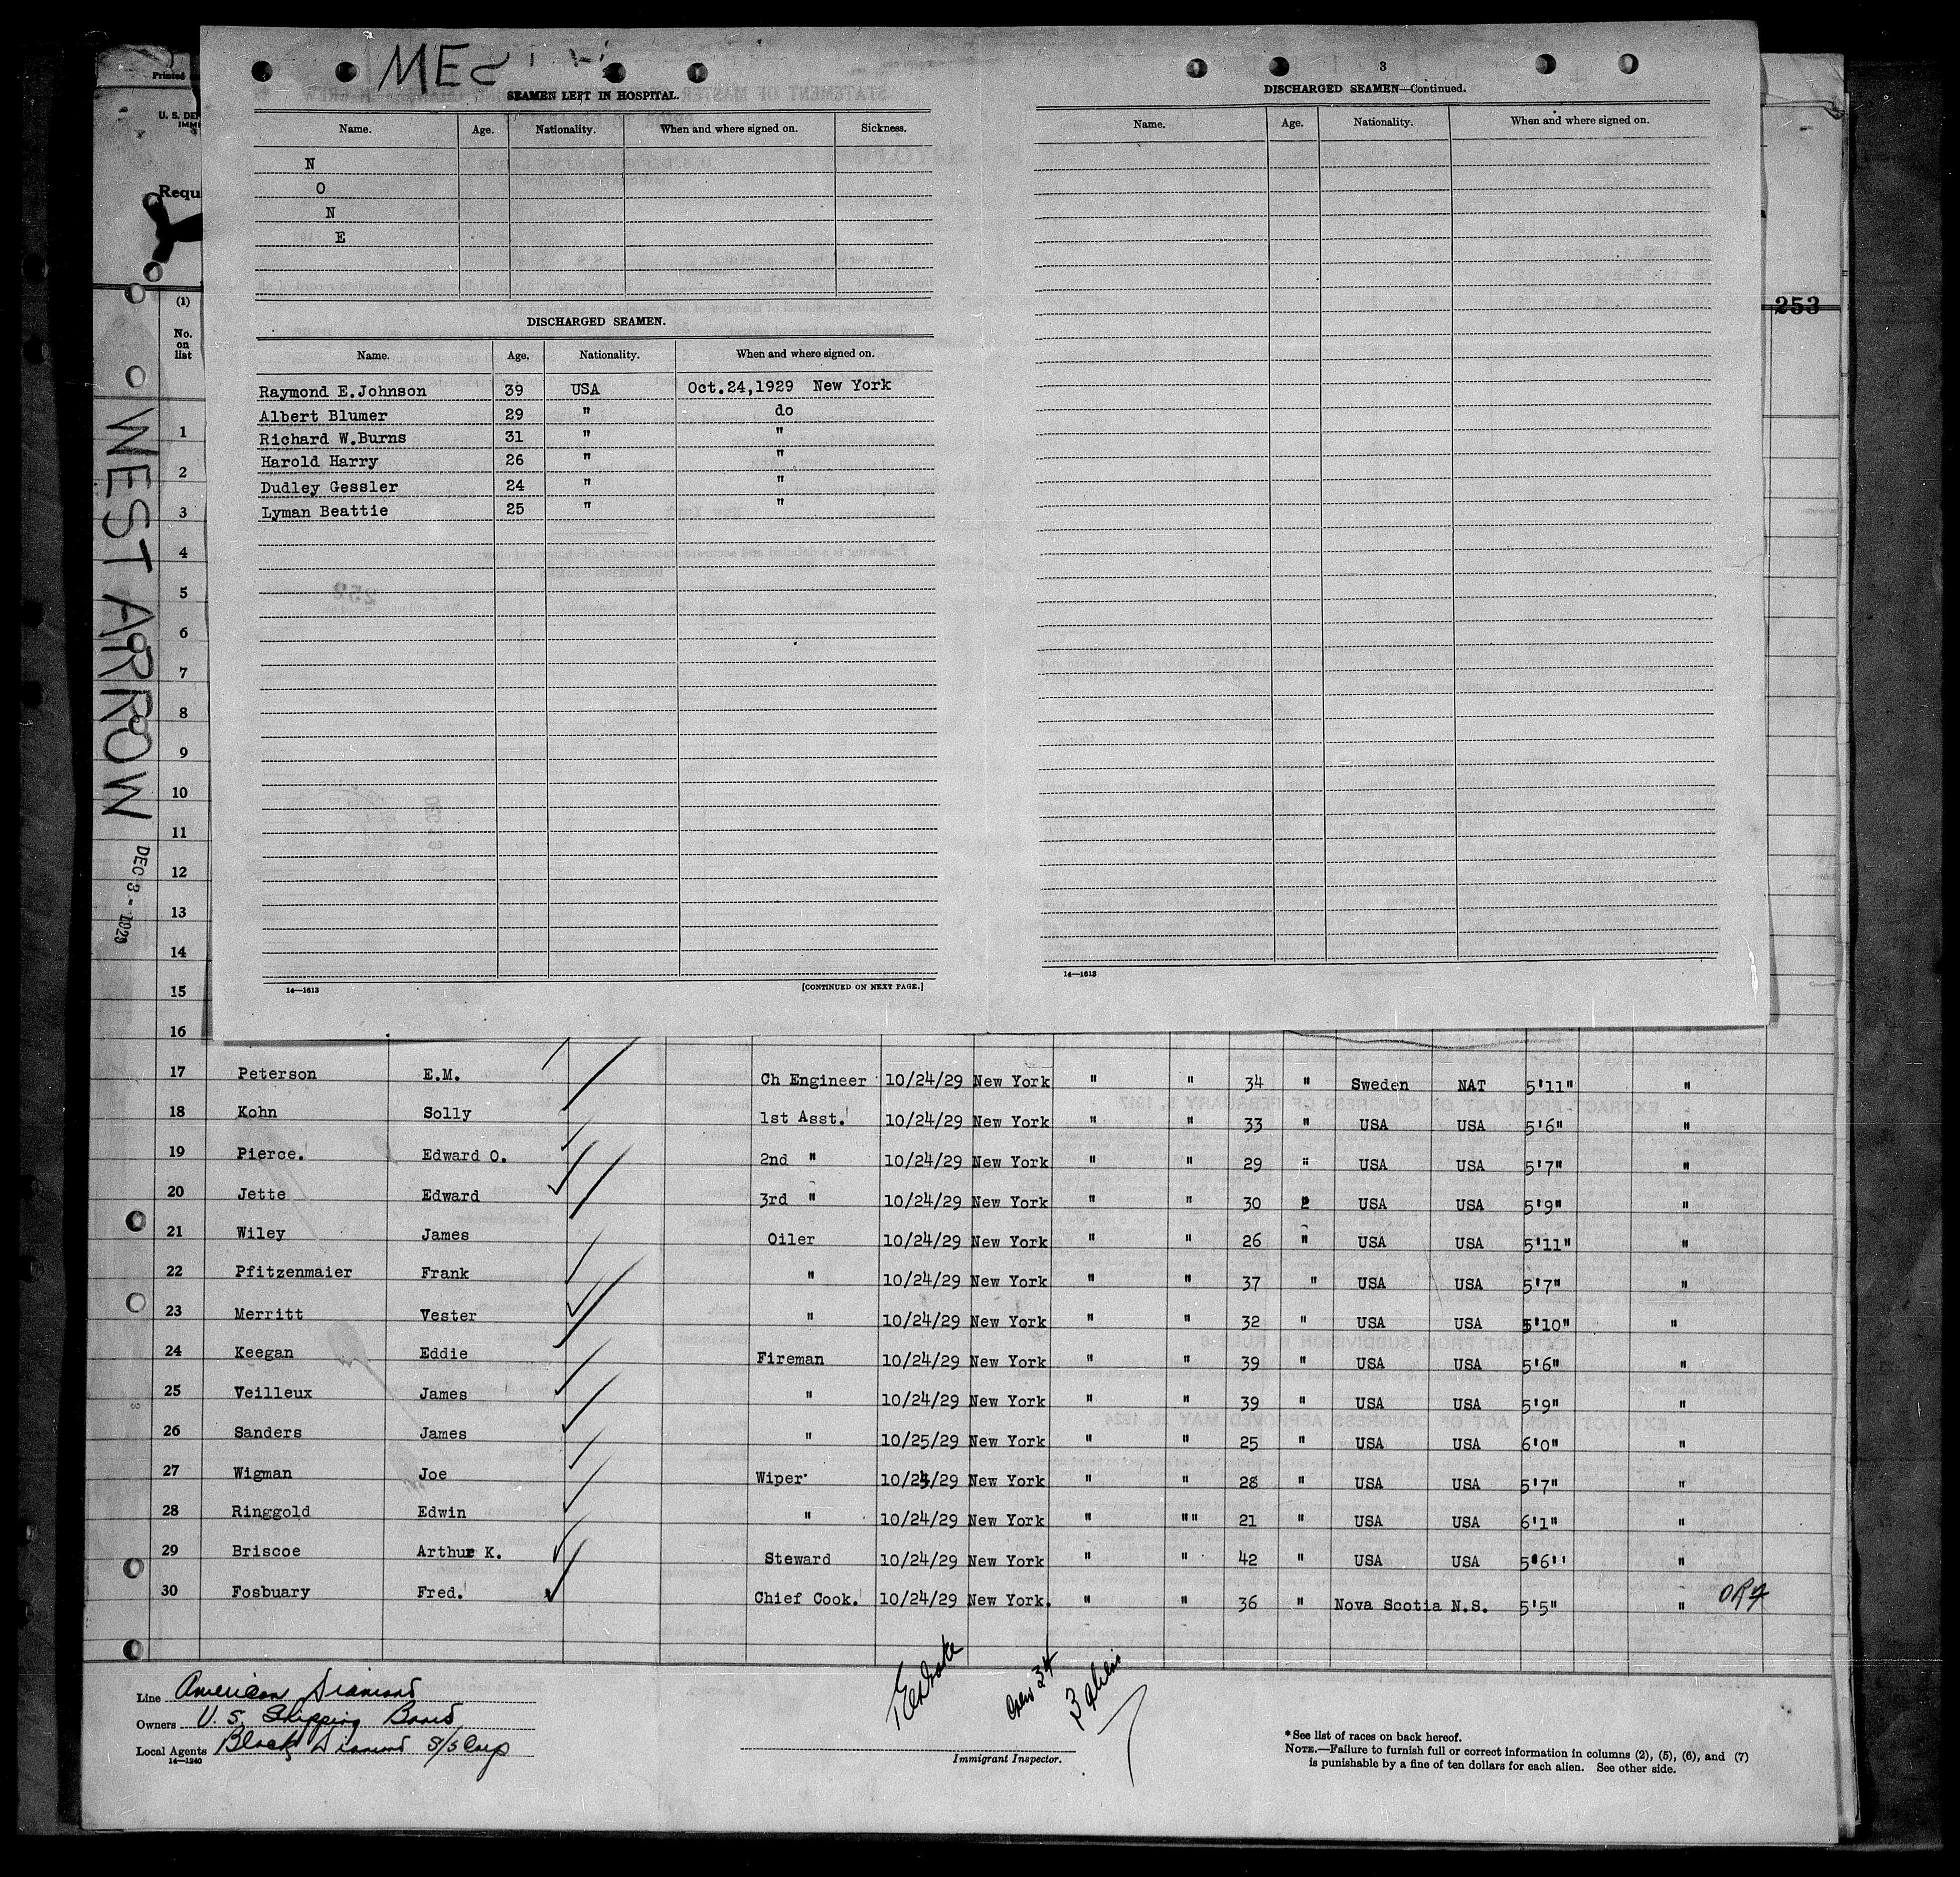 SEAMEN LEFT IN HOSPITAL.
Name. Age. Nationality. When and where signed on. Sickness.
N
O
N
E
DISCHARGED SEAMEN.
Name. Age. Nationality. When and where signed on.
Raymond E.Johnson 39 USA Oct.24,1929 New York
Albert Blumer 29 " do
Richard W.Burns 31 " "
Harold Harry 26 " "
Dudley Gessler 24 " "
Lyman Beattie 25 " "
14—1613 [CONTINUED ON NEXT PAGE.]
3
DISCHARGED SEAMEN—Continued.
Name. Age. Nationality. When and where signed on.
14—1613
253
Printed
U. S. DE
IMMI
Requ
(1)
No.
on
list
WEST ARROW
DEC 3 - 1929
1
2
3
4
5
6
7
8
9
10
11
12
13
14
15
16
17 Peterson E.M. Ch Engineer 10/24/29 New York " " 34 " Sweden NAT 5'11" "
18 Kohn Solly 1st Asst. 10/24/29 New York " " 33 " USA USA 5'6" "
19 Pierce. Edward O. 2nd " 10/24/29 New York " " 29 " USA USA 5'7" "
20 Jette Edward 3rd " 10/24/29 New York " " 30 USA USA 5'9" "
21 Wiley James Oiler 10/24/29 New York " " 26 " USA USA 5'11" "
22 Pfitzenmaier Frank " 10/24/29 New York " " 37 " USA USA 5'7" "
23 Merritt Vester " 10/24/29 New York " " 32 " USA USA 5'10" "
24 Keegan Eddie Fireman 10/24/29 New York " " 39 " USA USA 5'6" "
25 Veilleux James " 10/24/29 New York " " 39 " USA USA 5'9" "
26 Sanders James " 10/25/29 New York " " 25 " USA USA 6'0" "
27 Wigman Joe Wiper 10/24/29 New York " " 28 " USA USA 5'7" "
28 Ringgold Edwin " 10/24/29 New York " "" 21 " USA USA 6'1" "
29 Briscoe Arthur K. Steward 10/24/29 New York " " 42 " USA USA 5'6'' "
30 Fosbuary Fred. Chief Cook. 10/24/29 New York. " " 36 " Nova Scotia N.S. 5'5" "
Line American Diamond
Owners U. S. Shipping Board
Local Agents Black Diamond S/S Corp
14—1240
Crew 34
3 aliens
Immigrant Inspector.
* See list of races on back hereof.
NOTE.—Failure to furnish full or correct information in columns (2), (5), (6), and (7)
is punishable by a fine of ten dollars for each alien. See other side.